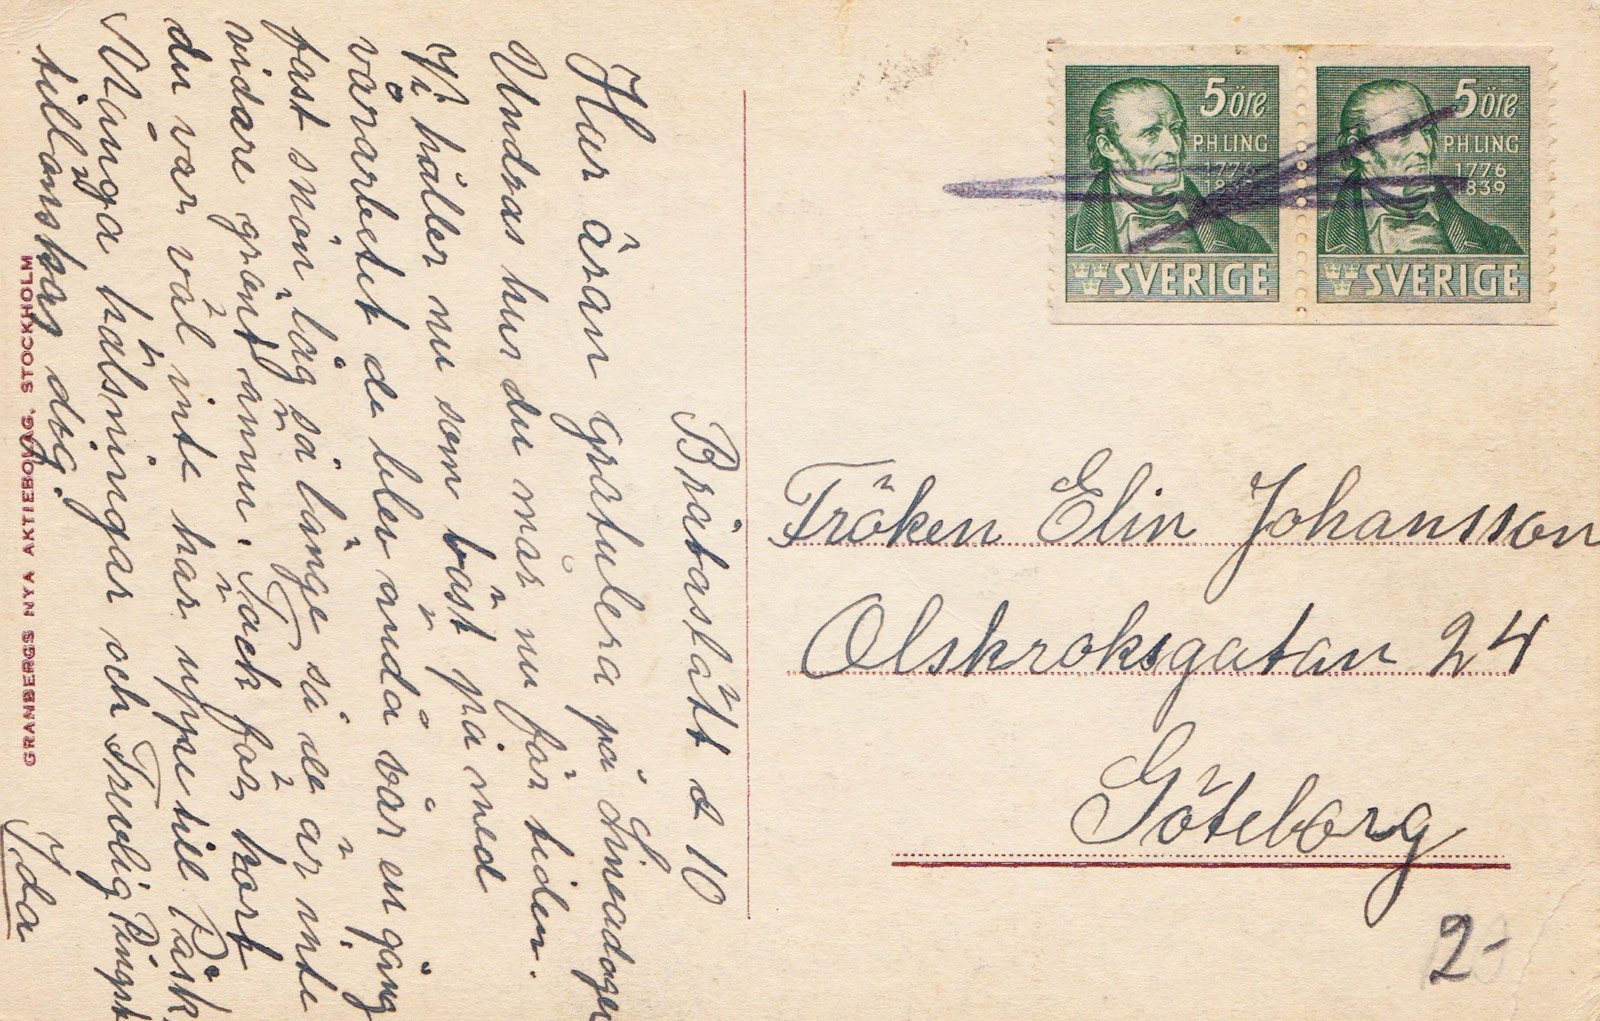 Bråtaslätt d 10
Har äran gratulera på Linneadagen
Undras hur du mår nu för tiden.
Vi håller nu som bäst på med
vårarbetet de blev ändå vår en gång
fast snön låg så länge så de är inte
vidare grönt ännu. Tack för kort
du var väl inte här uppe till Påsk.
Många hälsningar och Trevlig Pingst
tillönskas dig.
Ida
GRANBERGS NYA AKTIEBOLAG, STOCKHOLM
5 öre
P.H.LING
1776
1839
SVERIGE
5 öre
P.H.LING
1776
1839
SVERIGE
Fröken Elin Johansson
Olskroksgatan 24
Göteborg
2-